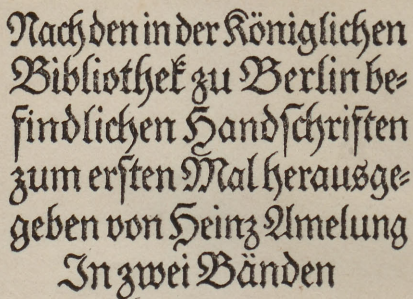 Nach den in der Königlichen
Bibliothek zu Berlin be-
findlichen Handſchriften
zum erſten Mal herausge-
geben von Heinz Amelung
In zwei Bänden